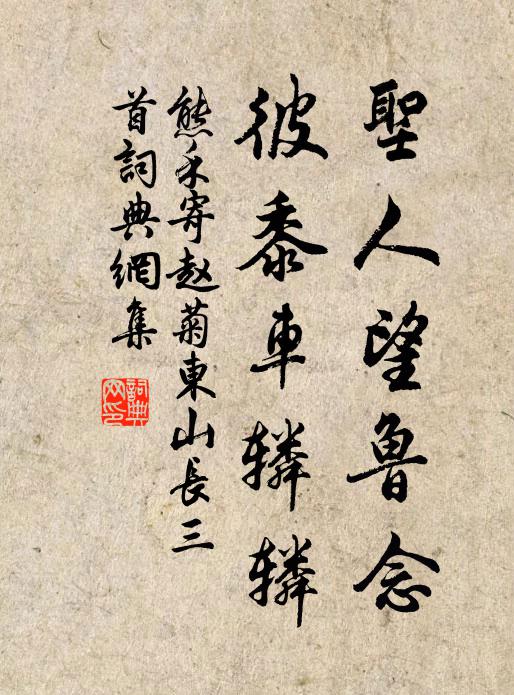 聖人望魯念
彼黍車轔轔
熊禾寄赵菊東山長三
首詞典網集
詞典網印